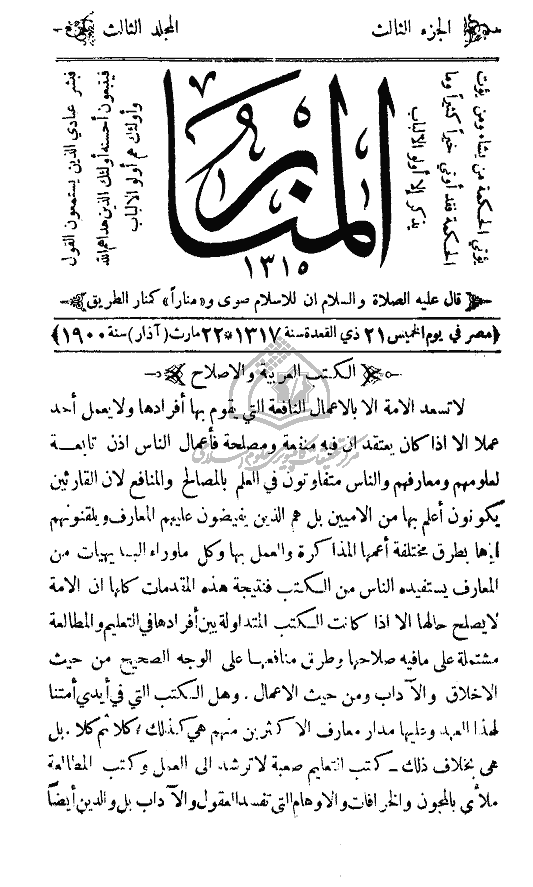 الجزء الثالث
المجلد الثالث
يؤتي الحكمة من يشاء ومن يؤت
الحكمة فقد أوتي خيراً كثيراً وما
يذكر إلا أولو الالباب
المنار
١٣١٥
فبشر عبادي الذين يستمعون القول
فيتبعون أحسنه أولئك الذين هداهم الله
وأولئك هم أولو الالباب
قال عليه الصلاة والسلام ان للاسلام صوى و «مناراً» كمنار الطريق
(مصر في يوم الخميس ٢١ ذي القعدة سنة ١٣١٧ * ٢٢ مارث (آذار) سنة ١٩٠٠)
الكتب العربية والاصلاح
لا تسعد الامة الا بالاعمال النافعة التي يقوم بها أفرادها ولا يعمل أحد
عملا الا اذا كان يعتقد ان فيه منفعة ومصلحة فأعمال الناس اذن تابعة
لعلومهم ومعارفهم والناس متفاوتون في العلم بالمصالح والمنافع لان القارئين
يكونون أعلم بها من الاميين بل هم الذين يفيضون عليهم المعارف ويلقنونهم
اياها بطرق مختلفة أعمها المذاكرة والعمل بها وكل ماوراء البديهيات من
المعارف يستفيده الناس من الكتب فنتيجة هذه المقدمات كلها ان الامة
لا يصلح حالها الا اذا كانت الكتب المتداولة بين أفرادها في التعليم والمطالعة
مشتملة على مافيه صلاحها وطرق منافعها على الوجه الصحيح من حيث
الاخلاق والآداب ومن حيث الاعمال . وهل الكتب التي في أيدي أمتنا
لهذا العهد وعليها مدار معارف الاكثرين منهم هي كذلك ؟ كلا ثم كلا . بل
هي بخلاف ذلك ــ كتب التعليم صعبة لا ترشد الى العمل وكتب المطالعة
ملأى بالمجون والخرافات والاوهام التي تفسد العقول والآداب بل والدين أيضاً